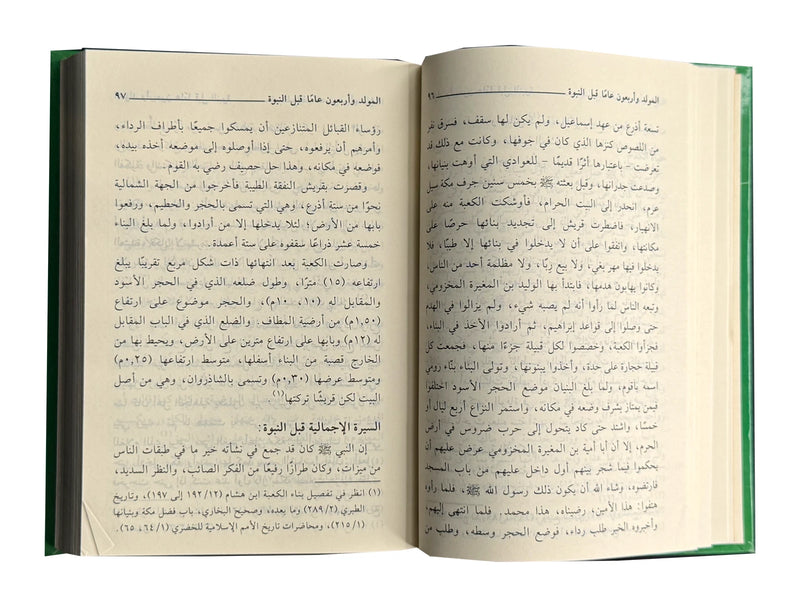 المولد وأربعون عامًا قبل النبوة ٩٦
تسعة أذرع من عهد إسماعيل، ولم يكن لها سقف، فسرق نفر
من اللصوص كنزها الذي كان في جوفها، وكانت مع ذلك قد
تعرضت – باعتبارها أثرًا قديمًا – للعوادي التي أوهت بنيانها،
وصدعت جدرانها، وقبل بعثته ﷺ بخمس سنين جرف مكة سيل
عرم، انحدر إلى البيت الحرام، فأوشكت الكعبة منه على
الانهيار، فاضطرت قريش إلى تجديد بنائها حرصًا على
مكانتها، واتفقوا على أن لا يدخلوا في بنائها إلا طيبًا، فلا
يدخلوا فيها مهر بغي، ولا بيع ربًا، ولا مظلمة أحد من الناس،
وكانوا يهابون هدمها، فابتدأ بها الوليد بن المغيرة المخزومي،
وتبعه الناس لما رأوا أنه لم يصبه شيء، ولم يزالوا في الهدم
حتى وصلوا إلى قواعد إبراهيم، ثم أرادوا الأخذ في البناء،
فجزأوا الكعبة، وخصصوا لكل قبيلة جزءًا منها، فجمعت كل
قبيلة حجارة على حدة، وأخذوا يبنونها، وتولى البناء بناء رومي
اسمه باقوم، ولما بلغ البنيان موضع الحجر الأسود اختلفوا
فيمن يمتاز بشرف وضعه في مكانه، واستمر النزاع أربع ليال أو
خمسًا، واشتد حتى كاد يتحول إلى حرب ضروس في أرض
الحرم، إلا أن أبا أمية بن المغيرة المخزومي عرض عليهم أن
يحكموا فيما شجر بينهم أول داخل عليهم من باب المسجد
فارتضوه، وشاء الله أن يكون ذلك رسول الله ﷺ، فلما رأوه
هتفوا: هذا الأمين، رضيناه، هذا محمد. فلما انتهى إليهم،
وأخبروه الخبر طلب رداء، فوضع الحجر وسطه، وطلب من
المولد وأربعون عامًا قبل النبوة ٩٧
رؤساء القبائل المتنازعين أن يمسكوا جميعًا بأطراف الرداء،
وأمرهم أن يرفعوه، حتى إذا أوصلوه إلى موضعه أخذه بيده،
فوضعه في مكانه، وهذا حل حصيف رضي به القوم.
وقصرت بقريش النفقة الطيبة فأخرجوا من الجهة الشمالية
نحوًا من ستة أذرع، وهي التي تسمى بالحجر والحطيم، ورفعوا
بابها من الأرض؛ لئلا يدخلها إلا من أرادوا، ولما بلغ البناء
خمسة عشر ذراعًا سقفوه على ستة أعمدة.
وصارت الكعبة بعد انتهائها ذات شكل مربع تقريبًا يبلغ
ارتفاعه (١٥) مترًا، وطول ضلعه الذي في الحجر الأسود
والمقابل له (١٠، ١٠م)، والحجر موضوع على ارتفاع
(١,٥٠م) من أرضية المطاف. والضلع الذي في الباب المقابل
له (١٢م) وبابها على ارتفاع مترين على الأرض، ويحيط بها من
الخارج قصبة من البناء أسفلها، متوسط ارتفاعها (٠,٢٥م)
ومتوسط عرضها (٠,٣٠م) وتسمى بالشاذروان، وهي من أصل
البيت لكن قريشًا تركتها(١).
السيرة الإجمالية قبل النبوة:
إن النبي ﷺ كان قد جمع في نشأته خير ما في طبقات الناس
من ميزات، وكان طرازًا رفيعًا من الفكر الصائب، والنظر السديد،
(١) انظر في تفصيل بناء الكعبة ابن هشام (١٩٢/١٢ إلى ١٩٧)، وتاريخ
الطبري (٢٨٩/٢) وما بعده، وصحيح البخاري، باب فضل مكة وبنيانها
(٢١٥/١)، ومحاضرات تاريخ الأمم الإسلامية للخضري (٦٤/١، ٦٥).